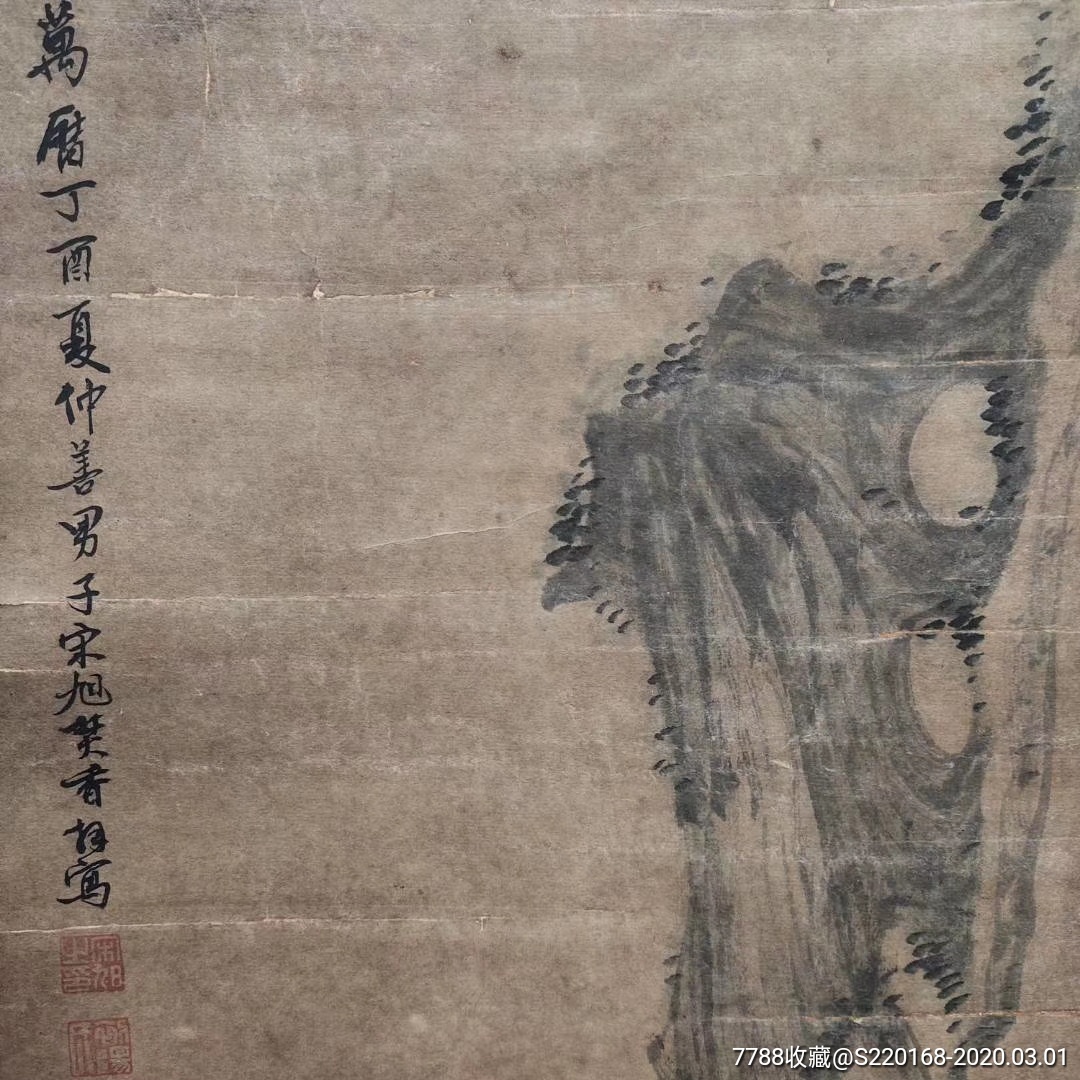 萬曆丁酉夏仲善男子宋旭焚香拜寫
7788收藏@S220168-2020.03.01